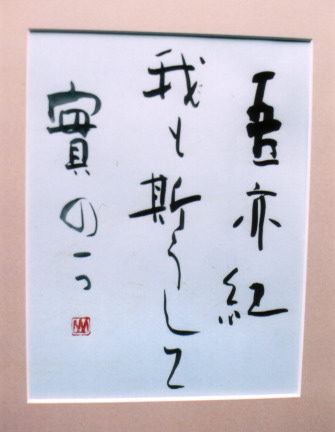 吾亦紅
我も斯うして
實の一つ